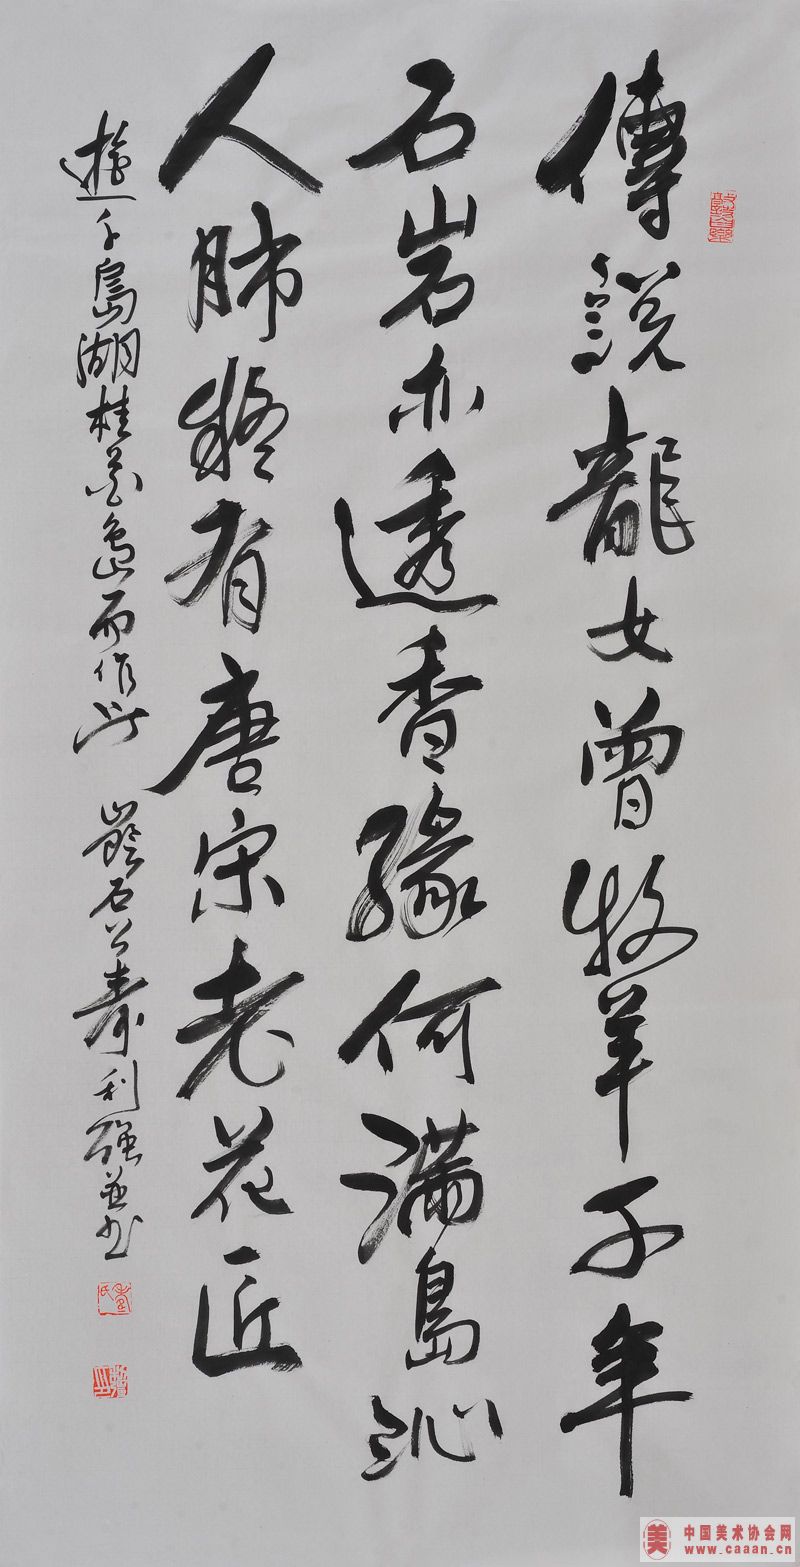 傳說龍女曾牧羊千年
石岩亦透香緣何滿島沁
人肺疑有唐宋老花匠
遊千島湖桂花島而作 巖石公壽利強並書
美 中国美术协会网
www.caaan.cn